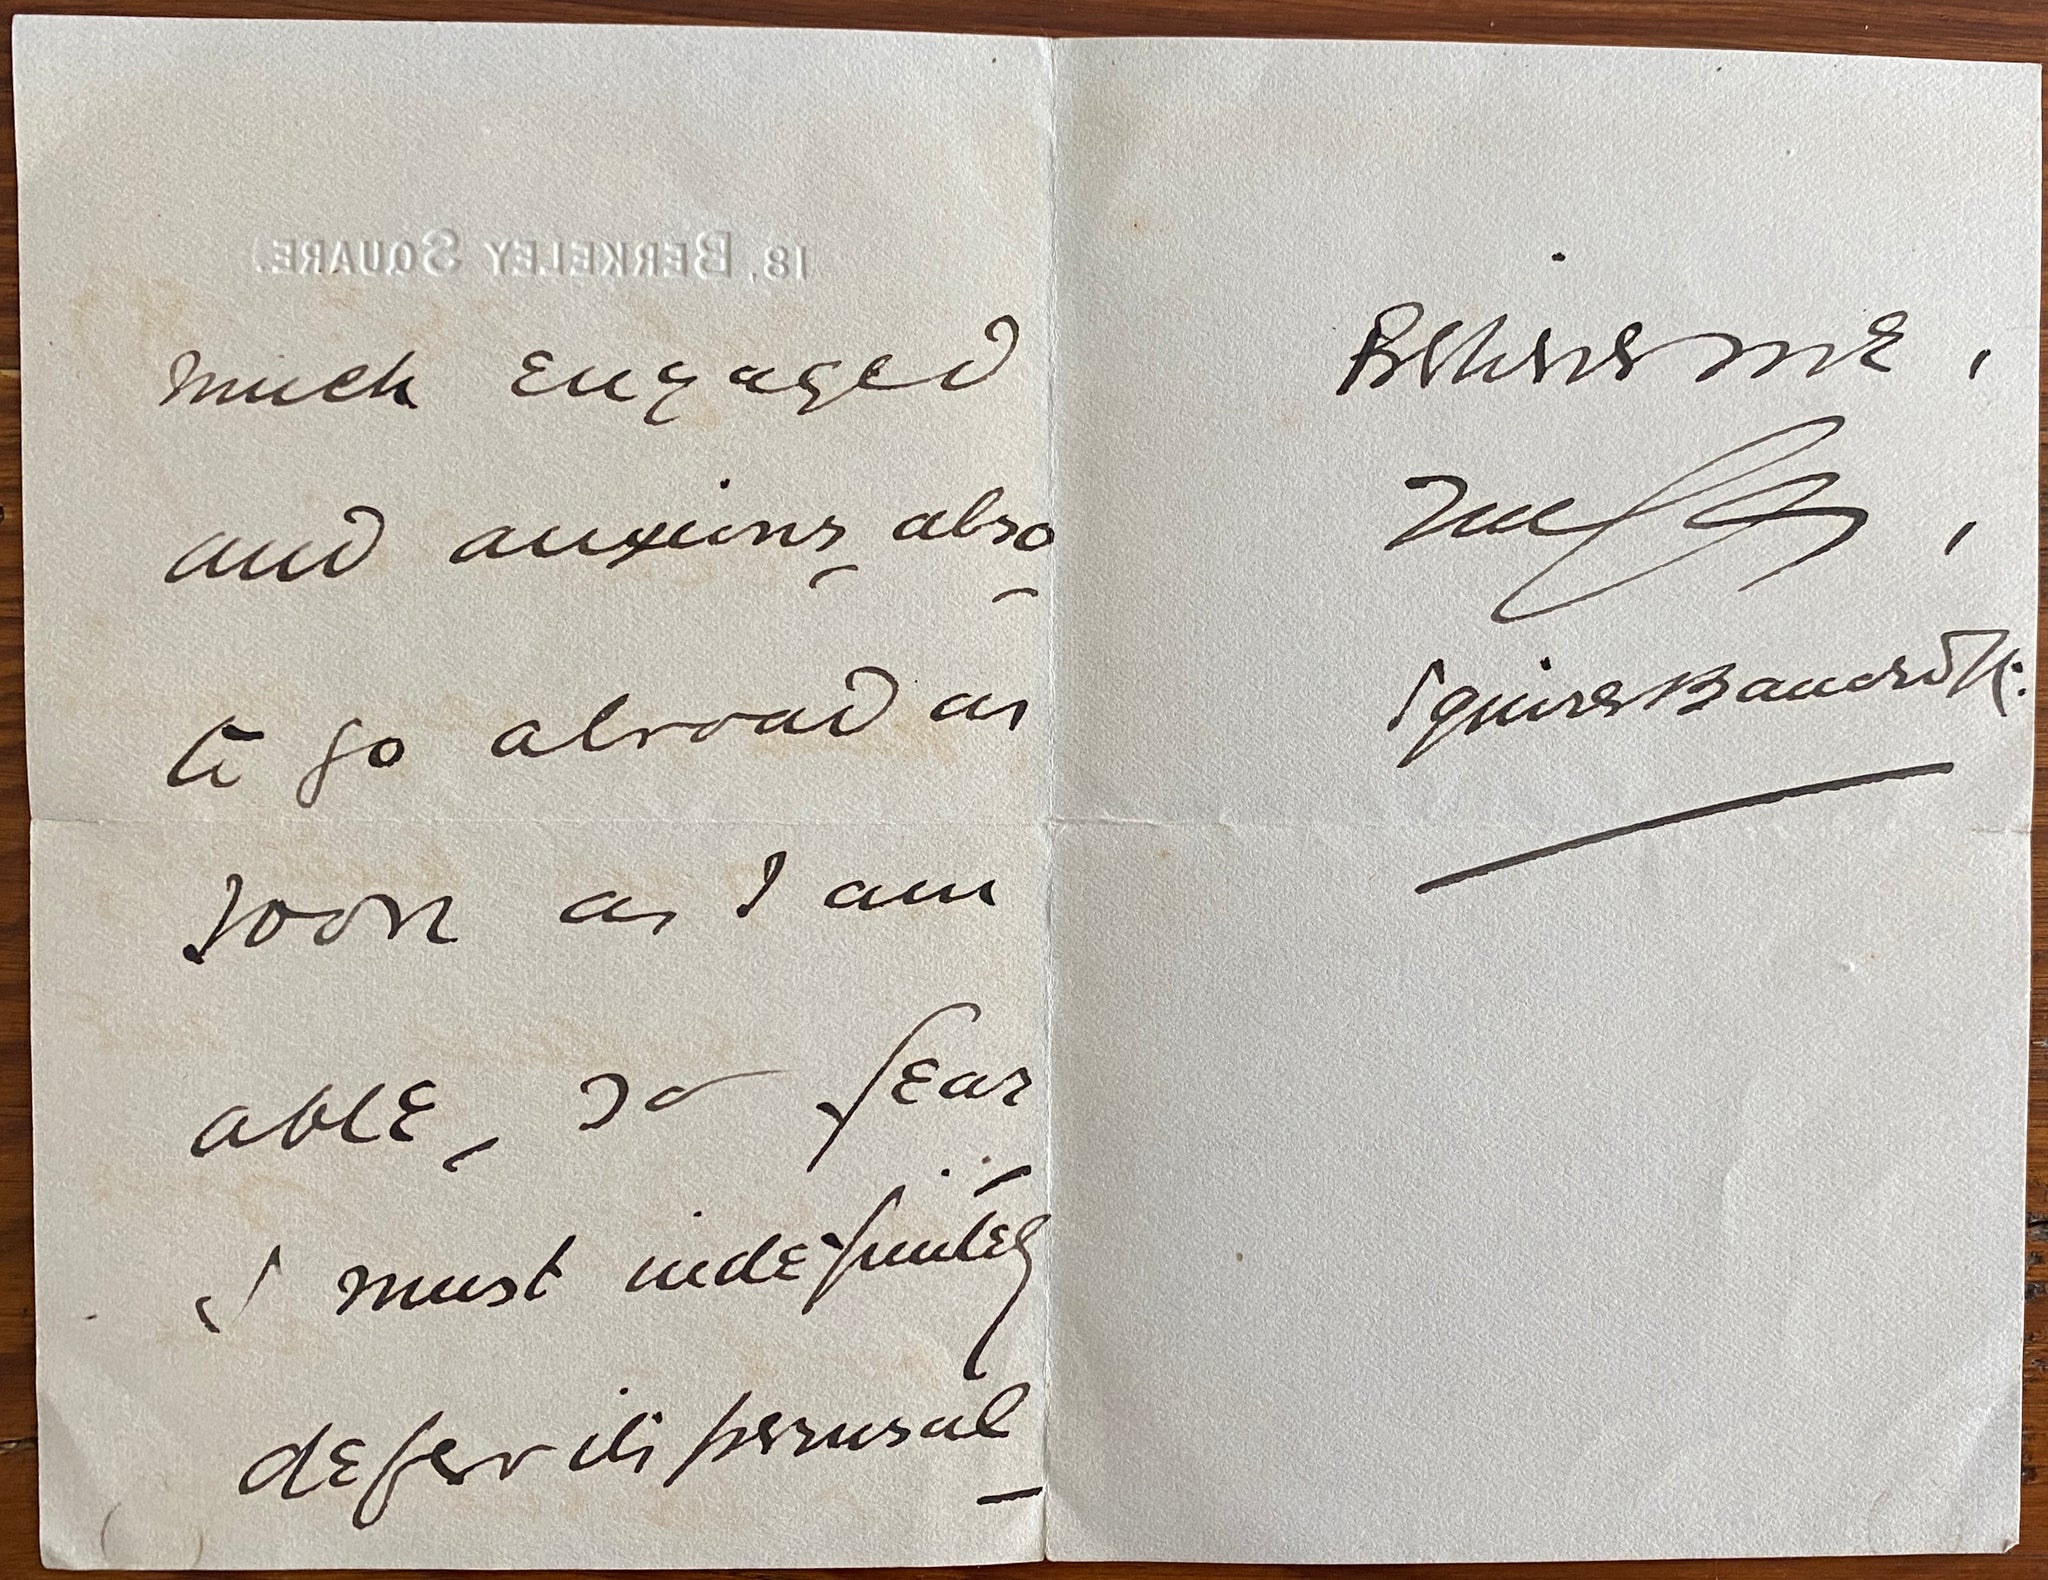 18, BERKELEY SQUARE.
much engaged
and anxious, also,
to go abroad as
soon as I am
able, so fear,
I must indefinitely
defer its perusal_
Believe me,
Truly,
SquireBancroft.